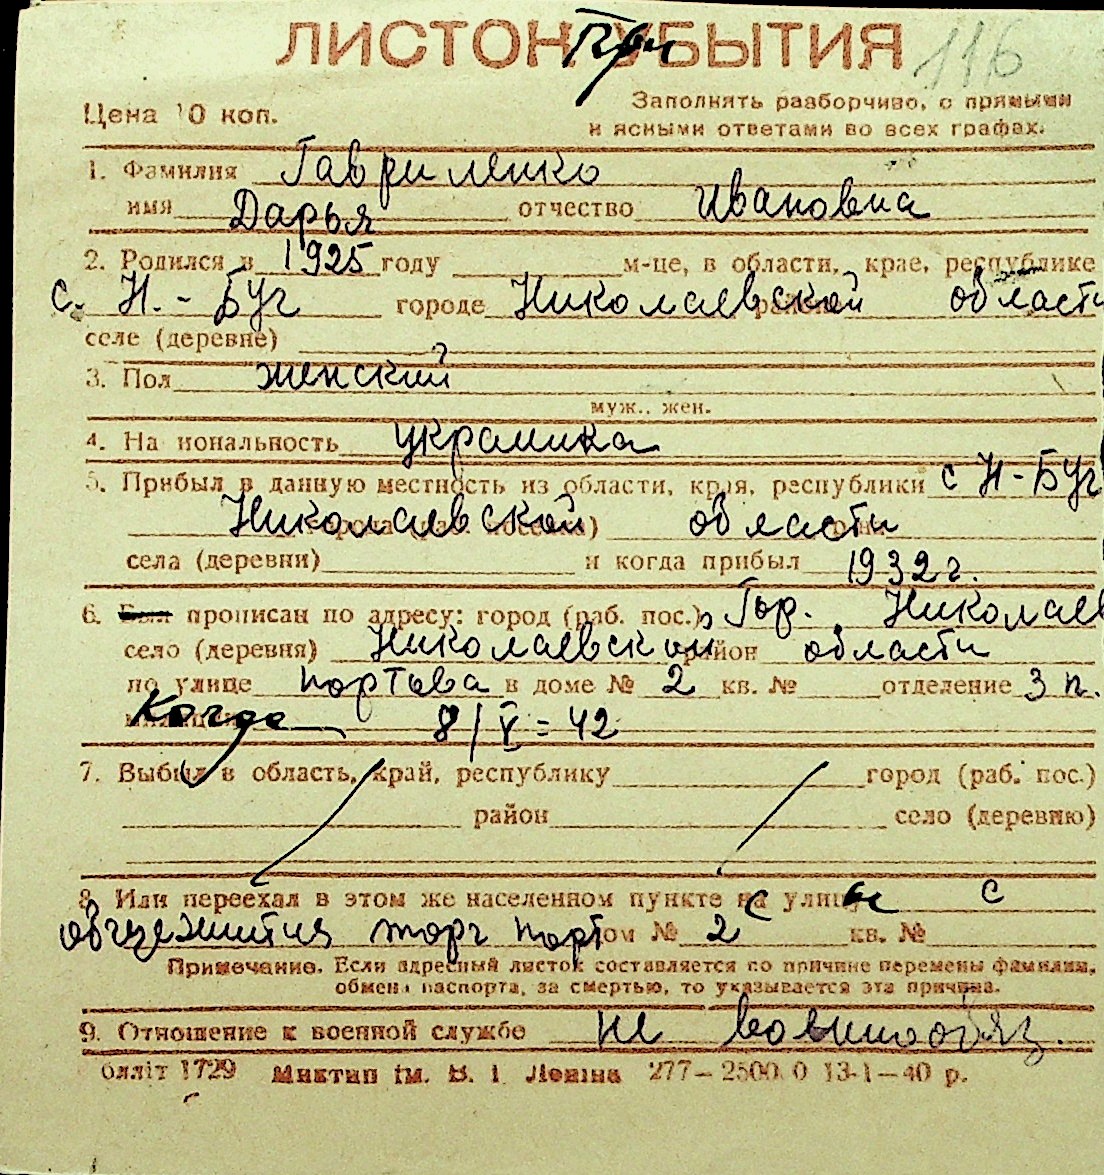 ЛИСТОК При УБЫТИЯ 116
Цена 10 коп. Заполнять разборчиво, с прямыми
и ясными ответами во всех графах.
1. Фамилия Гавриленко
имя Дарья отчество Ивановна
2. Родился в 1925 году м-це, в области, крае, республике
с. Н.-Буг городе Николаевской области
селе (деревне)
3. Пол женский
муж., жен.
4. На иональность украинка
5. Прибыл в данную местность из области, края, республики с Н-Буг
Николаевской области
села (деревни) и когда прибыл 1932 г.
6. Был прописан по адресу: город (раб. пос.) Гор. Николаев
село (деревня) Николаевской район области
по улице портова в доме № 2 кв. № отделение 3 п.
Когда 8/V=42
7. Выбыл в область, край, республику город (раб. пос.)
район село (деревню)
8. Или переехал в этом же населенном пункте на улицу с
общежития торг порт дом № 2 кв. №
Примечание. Если адресный листок составляется по причине перемены фамилии,
обмена паспорта, за смертью, то указывается эта причина.
9. Отношение к военной службе не военнообяз.
бліт 1729 Миктип ім. В. І Леніна 277—2500.0 13-1—40 р.